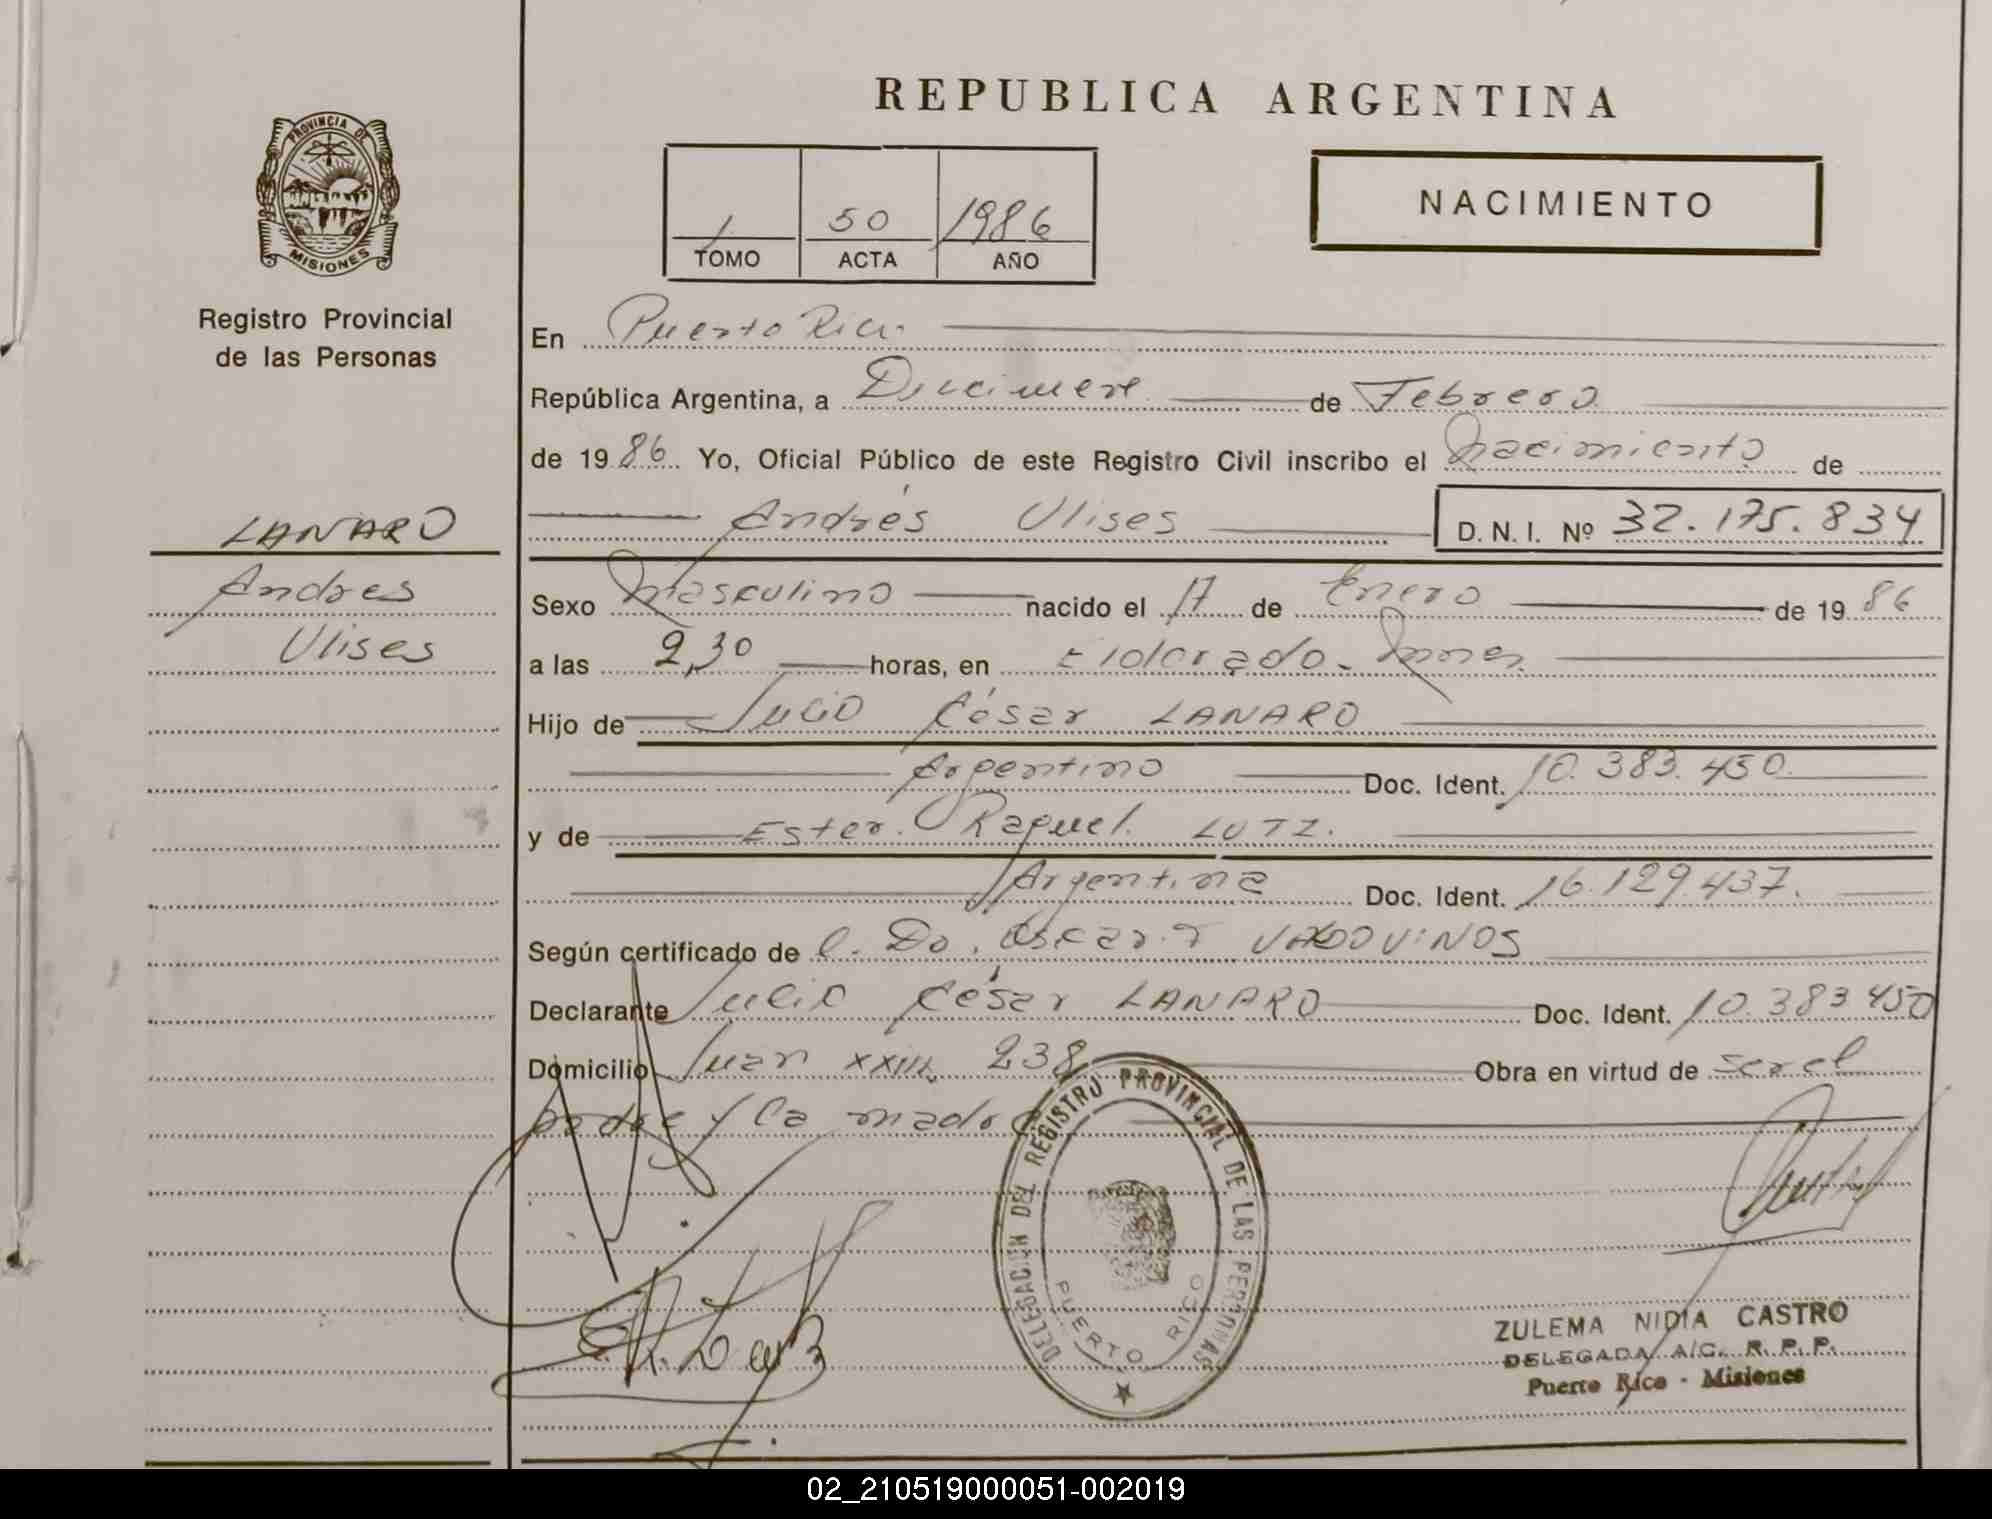 PROVINCIA DE
MISIONES
Registro Provincial
de las Personas
LANARO
Andres
Ulises
REPUBLICA ARGENTINA
1 50 1986
TOMO ACTA AÑO
NACIMIENTO
En Puerto Rico.
República Argentina, a de Febrero
de 1986. Yo, Oficial Público de este Registro Civil inscribo el Nacimiento de
Andrés Ulises D. N. I. Nº 32.175.834
Sexo Masculino nacido el 17 de Enero de 1986
a las 2,30 horas, en Eldorado - Mnes.
Hijo de Julio César LANARO
Argentino Doc. Ident. 10.383.450
y de Ester Raquel LUTZ.
Argentina Doc. Ident. 16.129.437.
Según certificado de Oscar
Declarante Julio César LANARO Doc. Ident. 10.383.450
Domicilio Juan XXIII 238 Obra en virtud de ser el
padre y la madre
DELEGACION DEL REGISTRO PROVINCIAL DE LAS PERSONAS
PUERTO RICO
ZULEMA NIDIA CASTRO
DELEGADA A/C. R. P. P.
Puerto Rico - Misiones
02_210519000051-002019